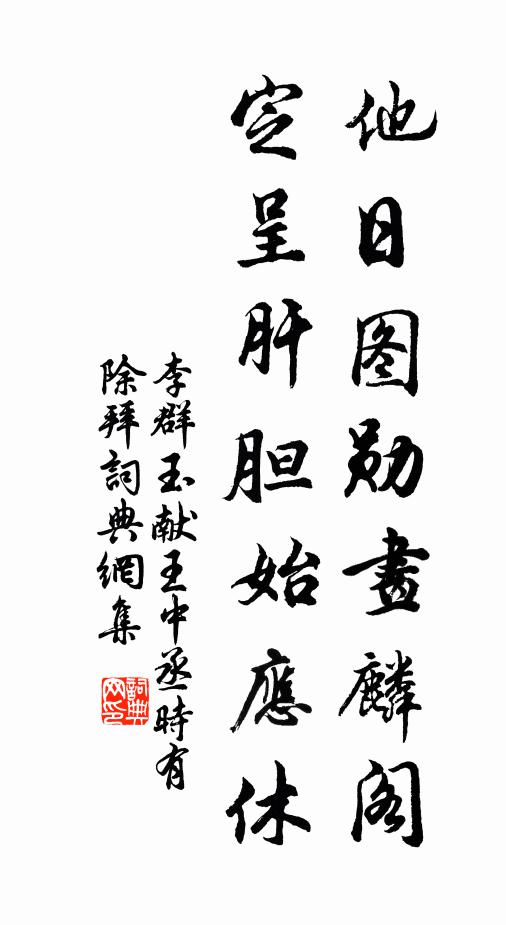 他日图勋畫麟阁
定呈肝胆始應休
李群玉献王中丞時有
除拜詞典網集
詞典网印